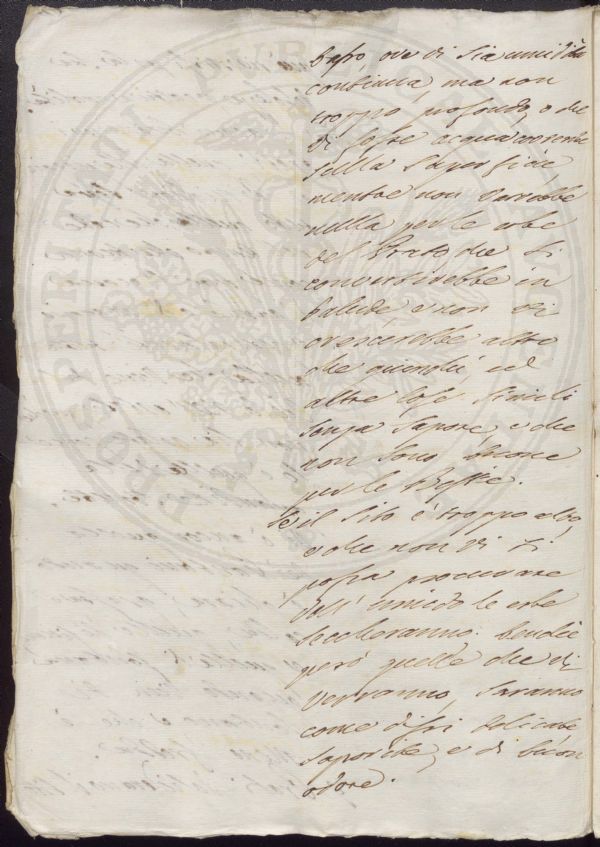 basso, ove vi sia umidità
continua, ma non
troppo profondo, o che
vi fosse acqua corrente
sulla superficie,
mentre non varrebbe
nulla per le erbe
del Prato che si
convertirebbe in
palude, e non vi
crescerebbe altro
che giunchi, ed
altre cose simili
senza sapore, e che
non sono buone
per le Bestie.
Se il sito è troppo alto,
e che non vi si
possa procurare
dell' umido le erbe
seccheranno. benchè
però quelle che vi
verranno, saranno
come dissi delicate
saporite, e di buon
odore.